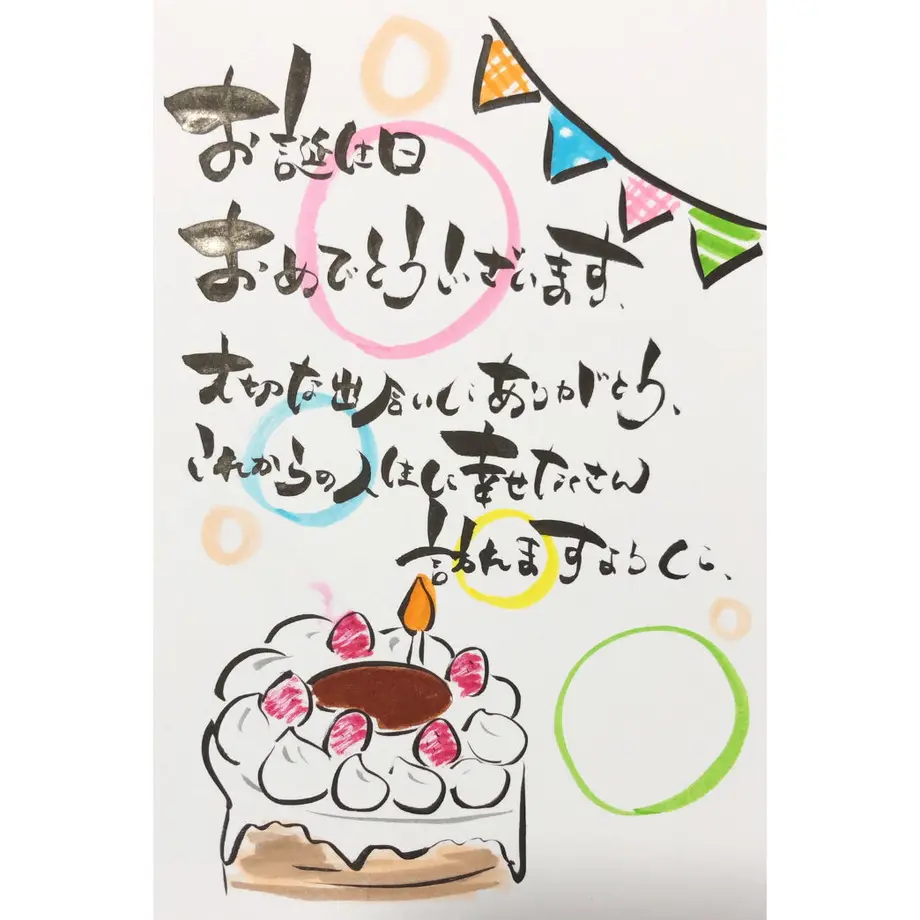 お誕生日
おめでとうございます、
大切な出会いにありがとう、
これからの人生に幸せたくさん
訪れますように、